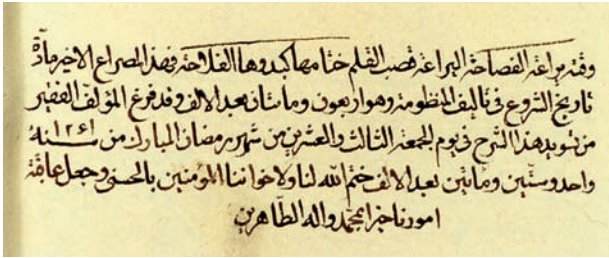 وفنه براعة الفصاحة البراعة قصب القلم ختامها كبدوها الفلاحة فهذا المصراع الاخير مادة
تاريخ الشروع فى تاليف المنظومة وهو اربعون ومائتان بعد الالف وقد فرغ المؤلف الفقير
من تسويد هذا الشرح فى يوم الجمعة الثالث والعشرين من شهر رمضان المبارك من سنة ١٢٦١
واحد وستين ومأتين بعد الالف ختم الله لنا ولاخواننا المؤمنين بالحسنى وجعل عاقبة
امورنا خيرا بمحمد واله الطاهرين